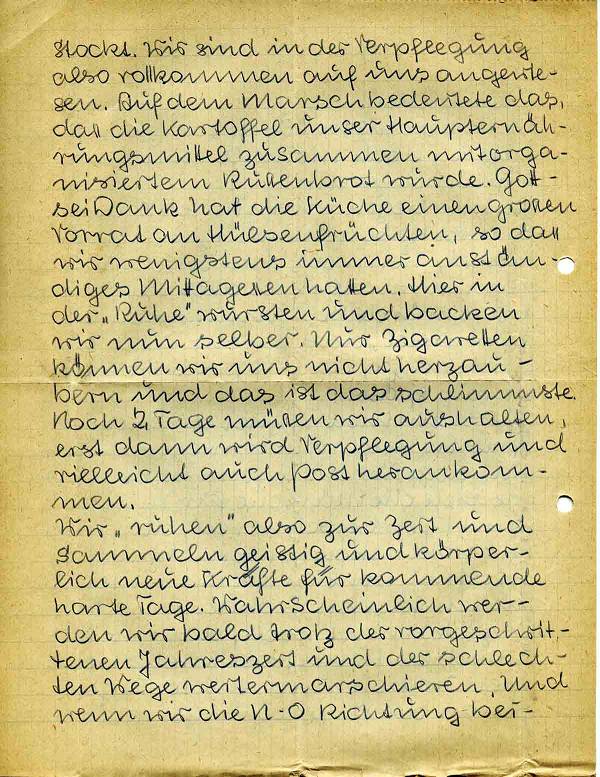 stockt. Wir sind in der Verpflegung
also vollkommen auf uns angewie-
sen. Auf dem Marsch bedeutete das,
daß die Kartoffel unser Haupternäh-
rungsmittel zusammen mit orga-
nisiertem Russenbrot wurde. Gott
sei Dank hat die Küche einen großen
Vorrat an Hülsenfrüchten, so daß
wir wenigstens immer anstän-
diges Mittagessen hatten. Hier in
der „Ruhe" wursten und backen
wir nun selber. Nur Zigaretten
können wir uns nicht herzau-
bern und das ist das schlimmste.
Noch 2 Tage müssen wir aushalten,
erst dann wird Verpflegung und
vielleicht auch Post herankom-
men.
Wir „ruhen" also zur Zeit und
sammeln geistig und körper-
lich neue Kräfte für kommende
harte Tage. Wahrscheinlich wer-
den wir bald trotz der vorgeschrit-
tenen Jahreszeit und der schlech-
ten Wege weitermarschieren. Und
wenn wir die N-O Richtung bei-